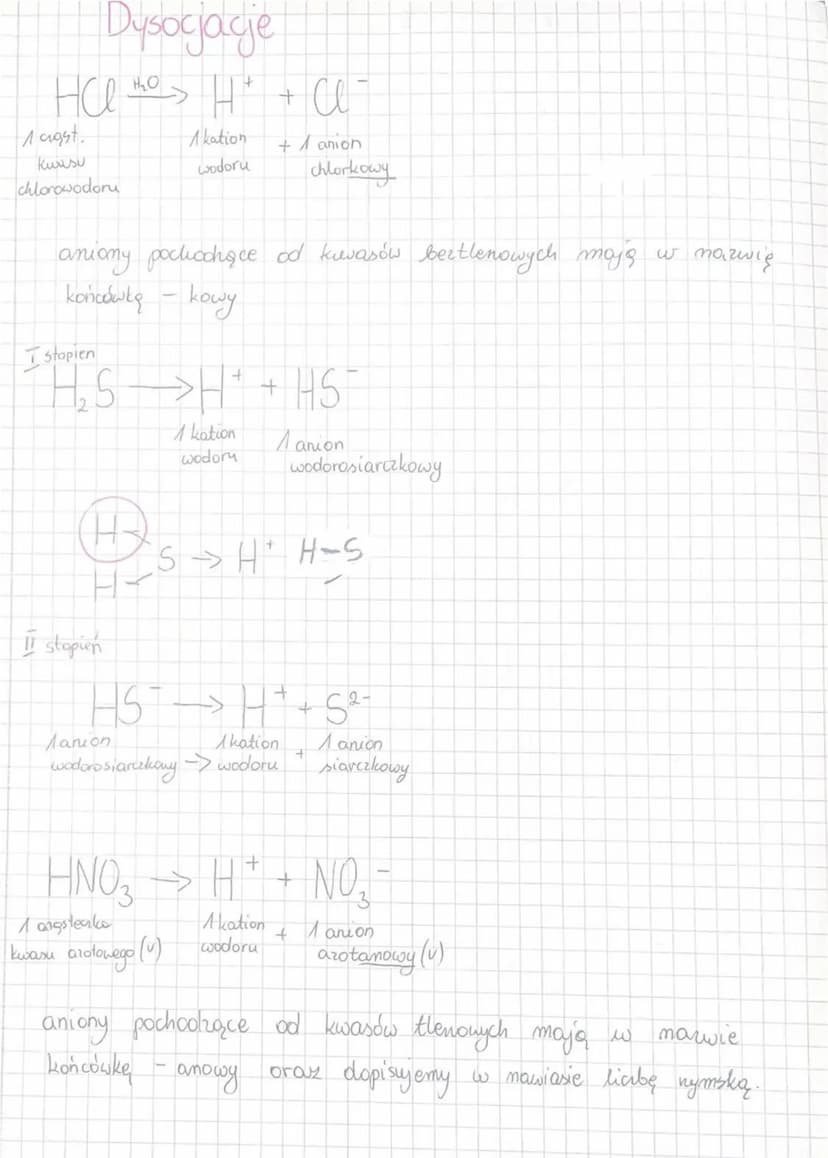 Dysocjacje
HCl H₂O → H⁺ + Cl⁻
1 cząst. 1 kation + 1 anion
kwasu wodoru chlorkowy
chlorowodoru
aniony pochodzące od kwasów beztlenowych mają w nazwię
końcówkę - kowy
I stopien
H₂S → H⁺ + HS⁻
1 kation 1 anion
wodoru wodorosiarczkowy
H-
S → H⁺ H-S
H-
II stopień
HS⁻ → H⁺ + S²⁻
1 anion 1 kation + 1 anion
wodorosiarczkowy -> wodoru siarczkowy
HNO₃ → H⁺ + NO₃⁻
1 cząsteczka 1 kation + 1 anion
kwasu azotowego (V) wodoru azotanowy (V)
aniony pochodzące od kwasów tlenowych mają w nazwie
końcówkę - anowy oraz dopisujemy w nawiasie liczbę rzymską.